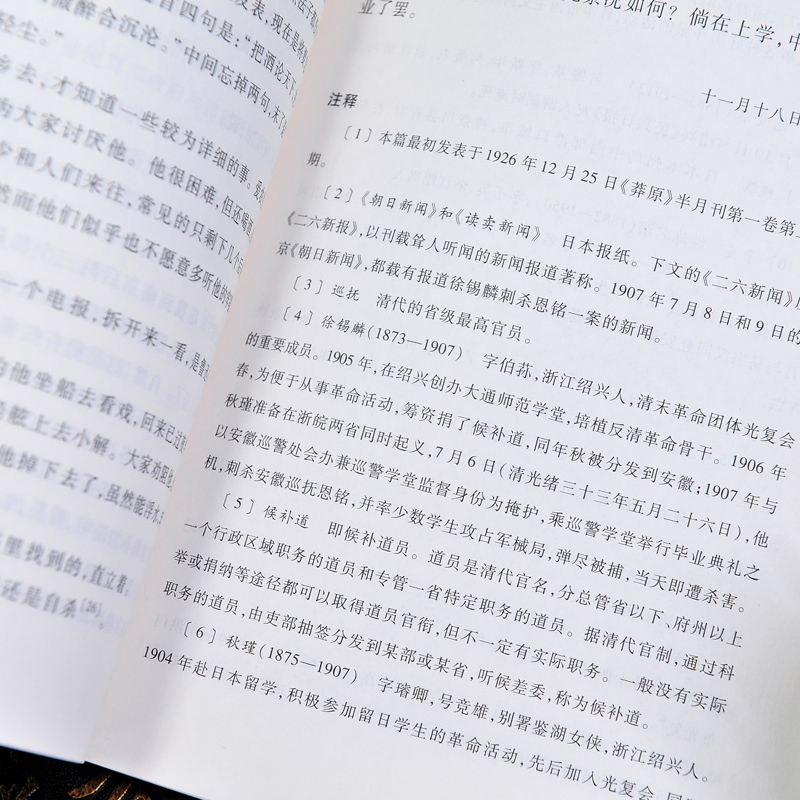 表,现在是
首四句是:“把酒论天下
微醉合沉沦。”中间忘掉两句,末了
轻尘。”
乡去,才知道一些较为详细的事。
为大家讨厌他。他很困难,但还喝酒
少和人们来往,常见的只剩下几个
然而他们似乎也不愿意多听他的
一个电报,拆开来一看,是
的他坐船去看戏,回来已过
船舷上去小解。大家劝阻他
他掉下去了,虽然能浮水
里找到的,直立着。
还是自杀[26]。
况如何?倘在上学,中
业了罢。
十一月十八日
注释
〔1〕本篇最初发表于1926年12月25日《莽原》半月刊第一卷第
期。
〔2〕《朝日新闻》和《读卖新闻》 日本报纸。下文的《二六新闻》
《二六新报》,以刊载耸人听闻的新闻报道著称。1907年7月8日和9日的
京《朝日新闻》,都载有报道徐锡麟刺杀恩铭一案的新闻。
〔3〕巡抚 清代的省级最高官员。
〔4〕徐锡麟(1873—1907) 字伯荪,浙江绍兴人,清末革命团体光复会
的重要成员。1905年,在绍兴创办大通师范学堂,培植反清革命骨干。1906年
春,为便于从事革命活动,筹资捐了候补道,同年秋被分发到安徽;1907年与
秋瑾准备在浙皖两省同时起义,7月6日(清光绪三十三年五月二十六日),他
以安徽巡警处会办兼巡警学堂监督身份为掩护,乘巡警学堂举行毕业典礼之
机,刺杀安徽巡抚恩铭,并率少数学生攻占军械局,弹尽被捕,当天即遭杀害。
〔5〕候补道 即候补道员。道员是清代官名,分总管省以下、府州以上
一个行政区域职务的道员和专管一省特定职务的道员。据清代官制,通过科
举或捐纳等途径都可以取得道员官衔,但不一定有实际职务。一般没有实际
职务的道员,由吏部抽签分发到某部或某省,听候差委,称为候补道。
〔6〕秋瑾(1875—1907) 字璿卿,号竞雄,别署鉴湖女侠,浙江绍兴人。
1904年赴日本留学,积极参加留日学生的革命活动,先后加入光复会、同